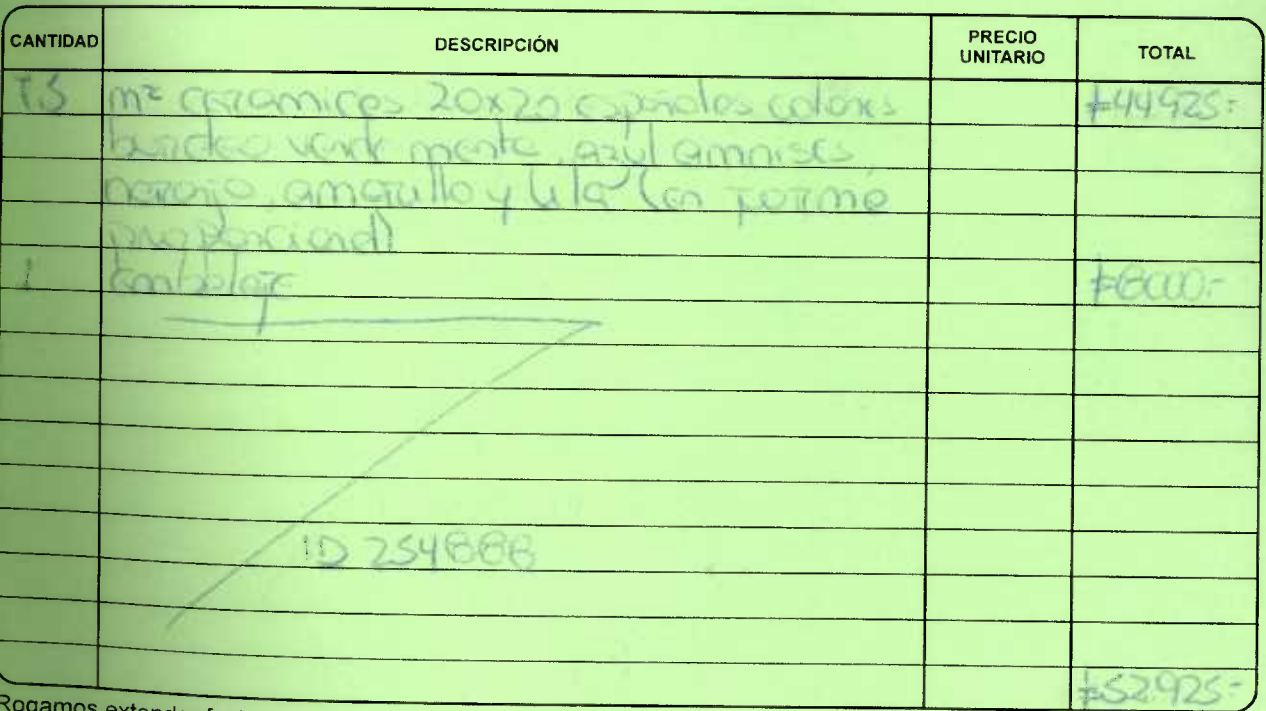 CANTIDAD DESCRIPCIÓN PRECIO UNITARIO TOTAL
7.5 m² ceramicos 20x20 españoles colores $44925.-
burdeo verde menta, azul
naranja, amarillo y lila (en forma
proporcional)
1 Embalaje $8000.-
ID 254888
$52.925.-
Rogamos